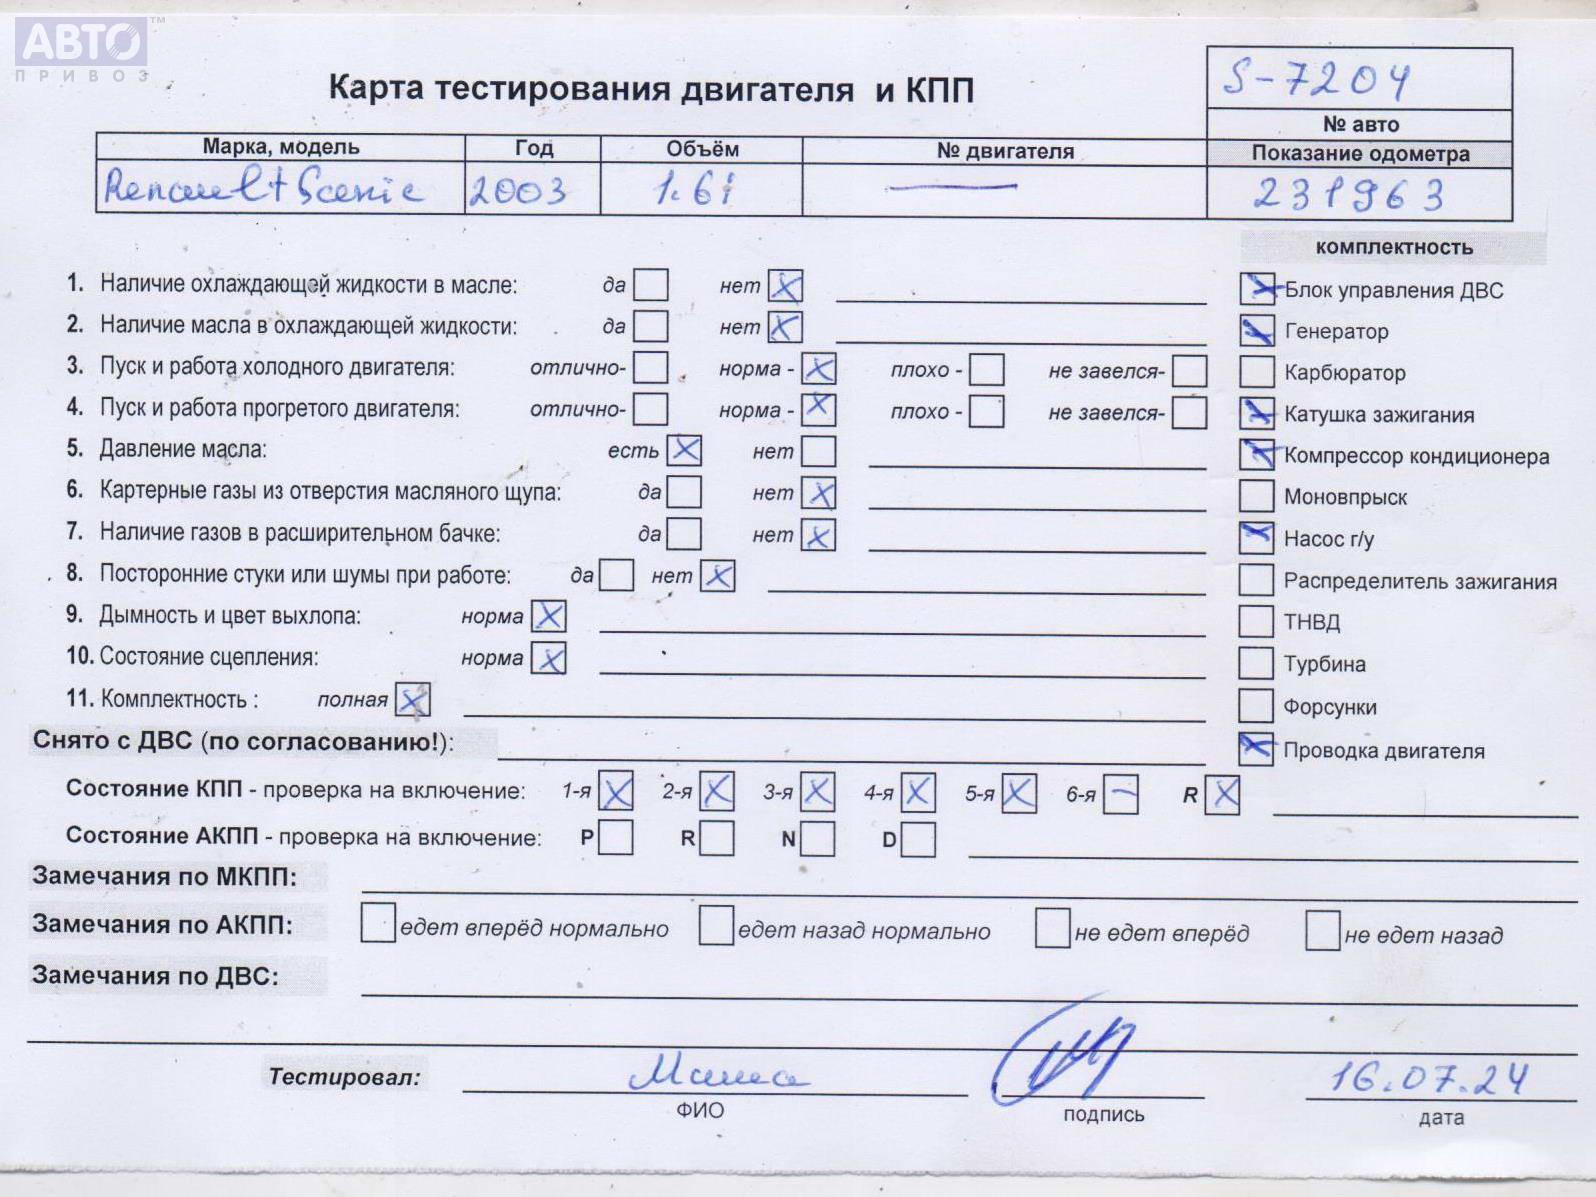 АВТО™
ПРИВОЗ
Карта тестирования двигателя и КПП
S-7204
№ авто
Марка, модель Год Объём № двигателя Показание одометра
Renault Scenic 2003 1.6i — 231963
комплектность
1. Наличие охлаждающей жидкости в масле: да нет X
Блок управления ДВС
2. Наличие масла в охлаждающей жидкости: да нет X
Генератор
3. Пуск и работа холодного двигателя: отлично- норма - X плохо - не завелся-
Карбюратор
4. Пуск и работа прогретого двигателя: отлично- норма - X плохо - не завелся-
Катушка зажигания
5. Давление масла: есть X нет
Компрессор кондиционера
6. Картерные газы из отверстия масляного щупа: да нет X
Моновпрыск
7. Наличие газов в расширительном бачке: да нет X
Насос г/у
8. Посторонние стуки или шумы при работе: да нет X
Распределитель зажигания
9. Дымность и цвет выхлопа: норма X
ТНВД
10. Состояние сцепления: норма X
Турбина
11. Комплектность : полная X
Форсунки
Снято с ДВС (по согласованию!):
Проводка двигателя
Состояние КПП - проверка на включение: 1-я X 2-я X 3-я X 4-я X 5-я X 6-я — R X
Состояние АКПП - проверка на включение: P R N D
Замечания по МКПП:
Замечания по АКПП: едет вперёд нормально едет назад нормально не едет вперёд не едет назад
Замечания по ДВС:
Тестировал: 16.07.24
ФИО подпись дата